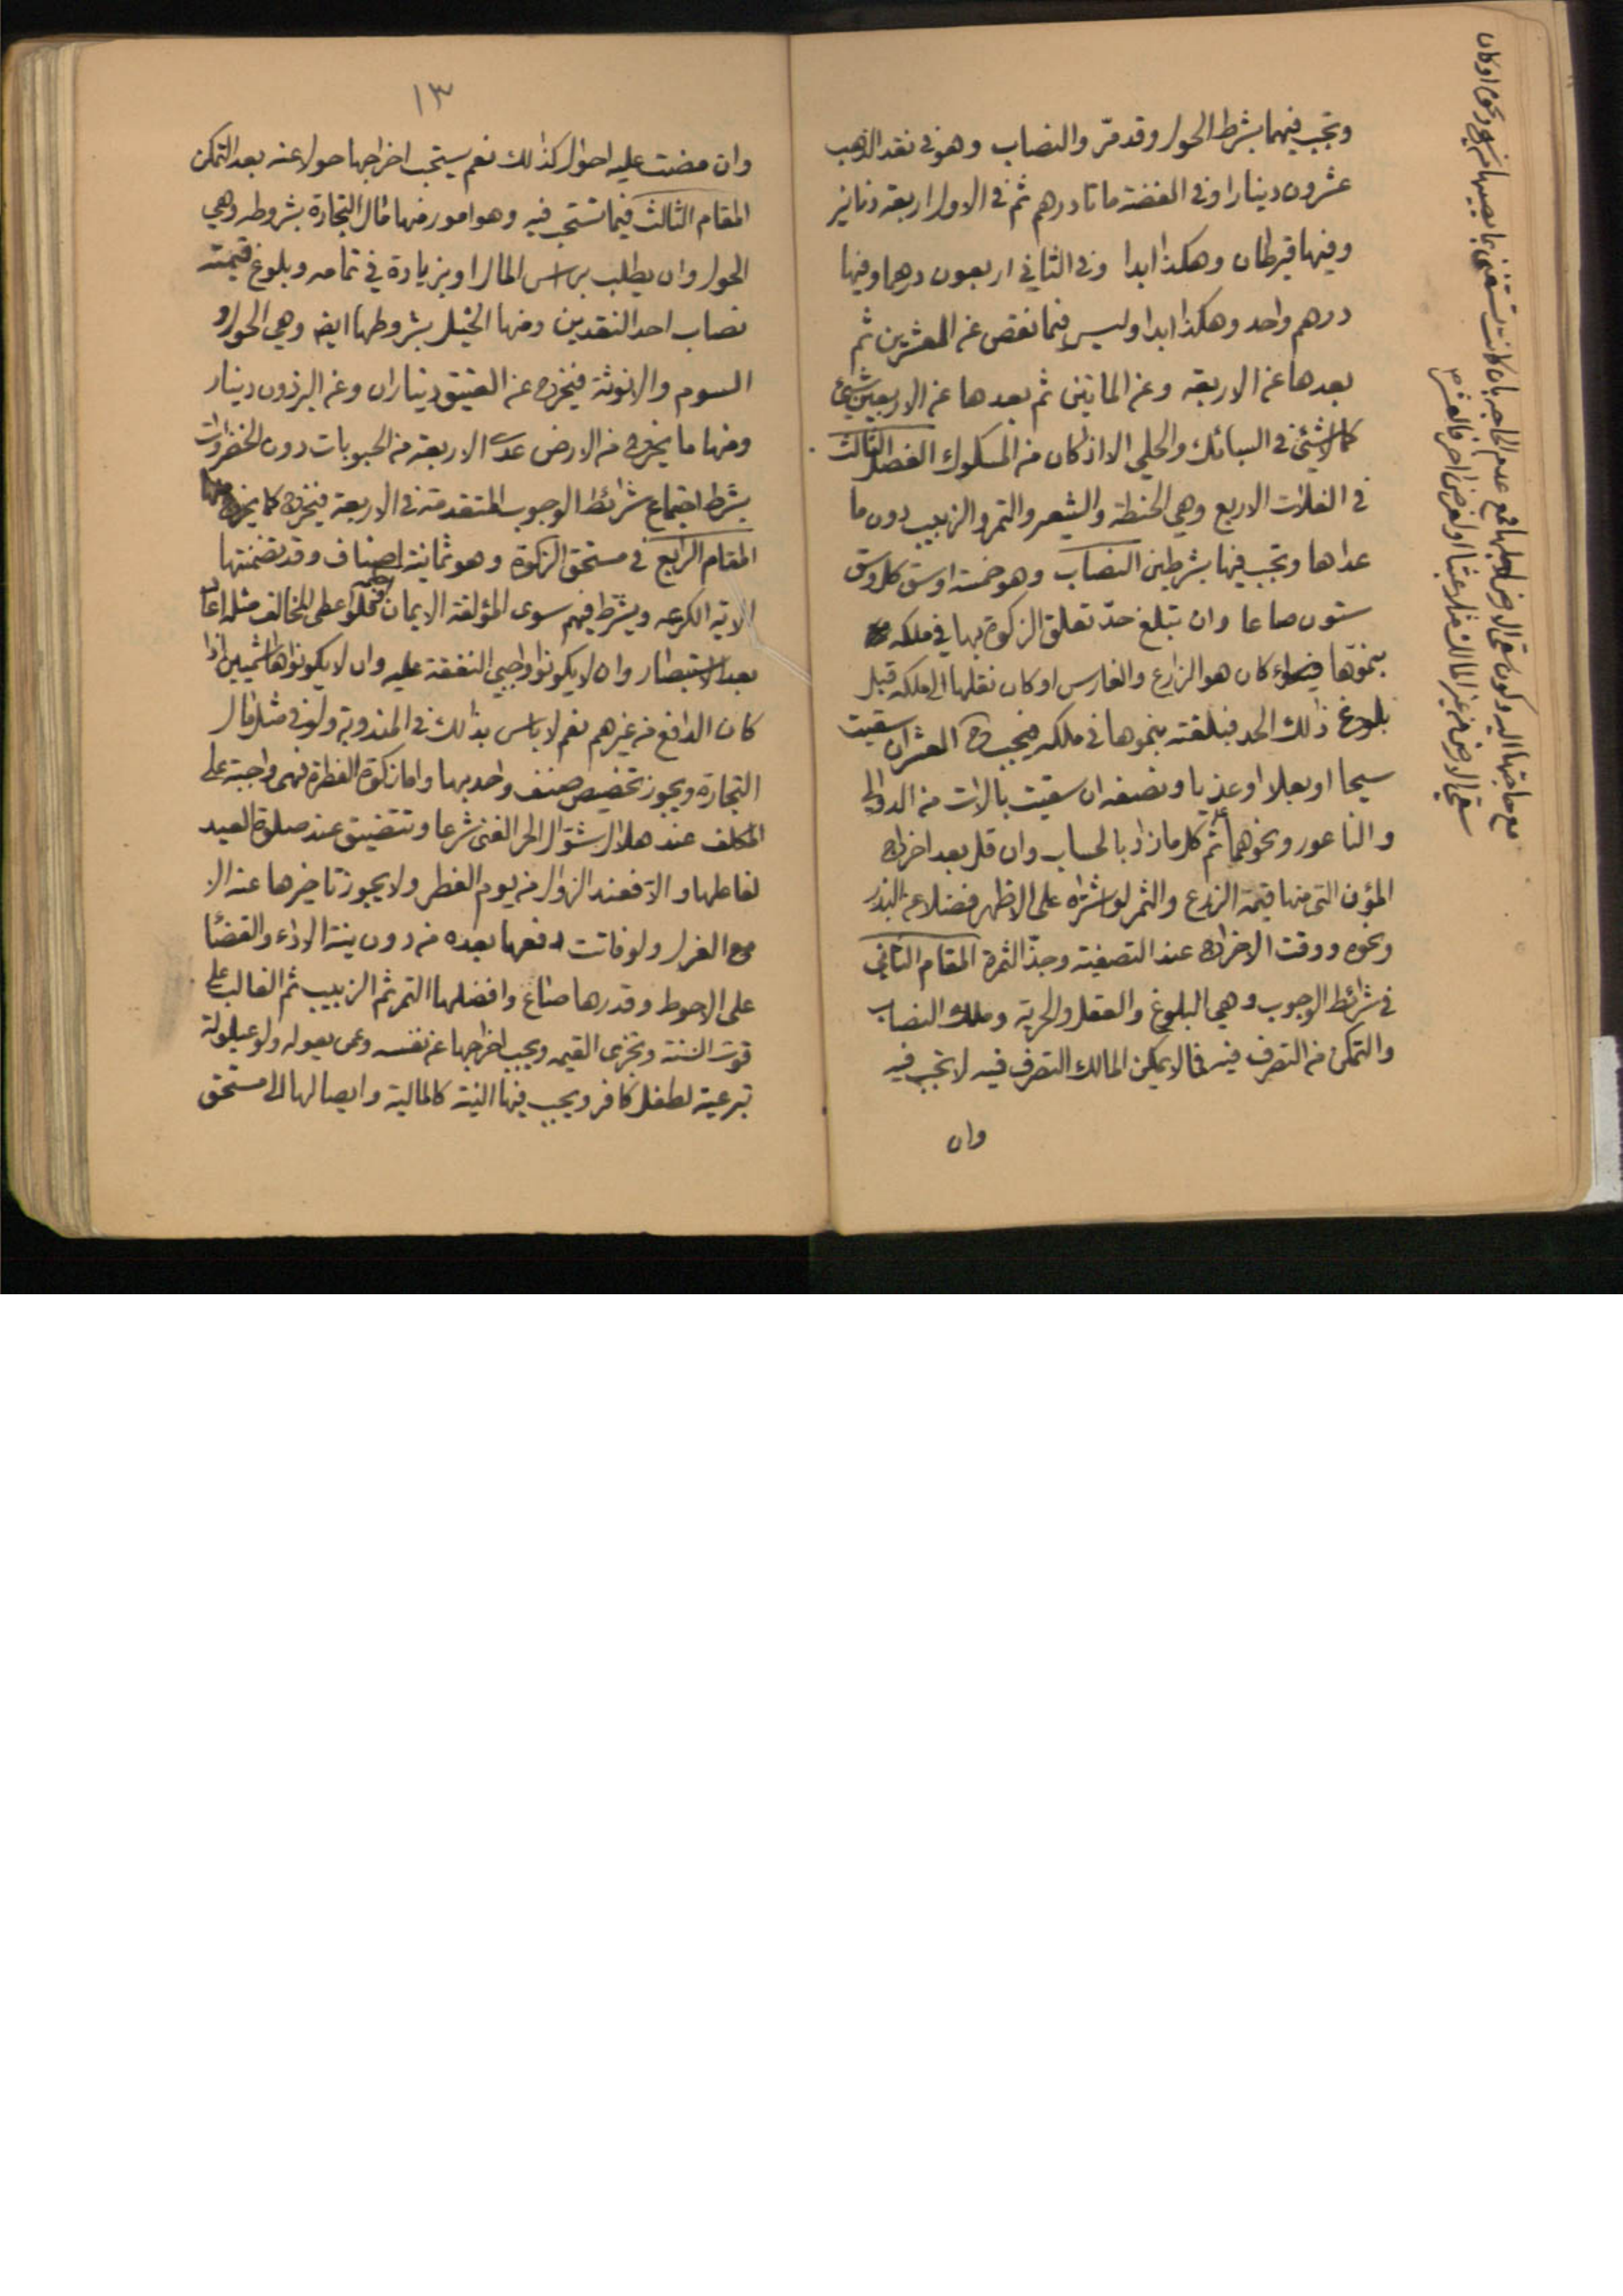 وتجب فيهما بشرط الحول وقد مرّ والنصاب وهو في نقد الذهب
عشرون دينارا وفي الفضة ماتا درهم ثم في الاول اربعة دنانير
وفيها قيراطان وهكذا ابدا وفي الثاني اربعون درهما وفيها
درهم واحد وهكذا ابدا وليس فيما نقص عن العشرين ثم
بعدها عن الاربعة وعن الماتين ثم بعدها عن الاربعين شيئ
كما لا شيئ في السبائك والحلي الا اذ كان من المسكوك الفصل الثالث
في الغلات الاربع وهي الحنطة والشعير والتمر والزبيب دون ما
عداها وتجب فيها بشرطين النصاب وهو خمسة اوسق كل وسق
ستون صاعا وان تبلغ حدّ تعلق الزكوة بها في ملكه
بنموّها فيه سواء كان هو الزارع والغارس او كان نقلها الى ملكه قبل
بلوغ ذلك الحد فبلغته بنموها في ملكه فيجب ح العشر ان سقيت
سيحا او بعلا او عذيا ونصفه ان سقيت بالات من الدوالي
والناعور ونحوهما ثم كل ما زاد بالحساب وان قل بعد اخراج
المؤن التي منها قيمة الزرع والثمر لو اشتراه على الاظهر فضلا عن البذر
ونحوه ووقت الاخراج عند التصفية وجذّ الثمرة المقام الثاني
في شرائط الوجوب وهي البلوغ والعقل والحرية وملك النصاب
والتمكن من التصرف فيه فما لا يمكن المالك التصرف فيه لا تجب فيه
وان
مع حاجتها اليه وكون سقي الارض لاجلها فمع عدم الحاجة بان كانت تستغني بما يصيبها من
سقي الارض من غير المالك مثلا عبثا او لغرض اخر فالعشر
١٣
وان مضت عليه احوال كذلك نعم يستحب اخراجها حولا عنه بعد التمكن
المقام الثالث فيما تستحب فيه وهو امور منها مال التجارة بشروطه وهي
الحول وان يطلب براس المال او بزيادة في تمامه وبلوغ قيمته
نصاب احد النقدين ومنها الخيل بشروطها ايضا وهي الحول و
السوم والانوثة فيخرج عن العتيق ديناران وعن البرذون دينار
ومنها ما يخرج من الارض عدا الاربعة من الحبوبات دون الخضراوات
بشرط اجتماع شرائط الوجوب المتقدمة في الاربعة فيخرج كما يخرج منها
المقام الرابع في مستحق الزكوة وهو ثمانية اصناف وقد تضمنتها
الاية الكريمه ويشترط فيهم سوى المؤلفة الايمان فلو اعطى المخالف مثله اعاد
بعد الاستبصار وان لا يكونوا واجبي النفقة عليه وان لا يكونوا هاشميين اذا
كان الدافع من غيرهم نعم لا باس بذلك في المندوبة ولو في مثل مال
التجارة ويجوز تخصيص صنف واحد بها واما زكوة الفطرة فهي واجبة على
المكلف عند هلال شوّال الحر الغنى شرعا وتتضيق عند صلوة العيد
لفاعلها والا فعند الزوال من يوم الفطر ولا يجوز تاخيرها عنه الا
مع العزل ولو فاتت دفعها بعده من دون نية الاداء والقضا
على الاحوط وقدرها صاع وافضلها التمر ثم الزبيب ثم الغالب على
قوت السنة وتجزى القيمه ويجب اخراجها عن نفسه وعمن يعوله ولو عيلولة
تبرعية لطفل كافر ويجب فيها النية كالمالية وايصالها الى مستحق